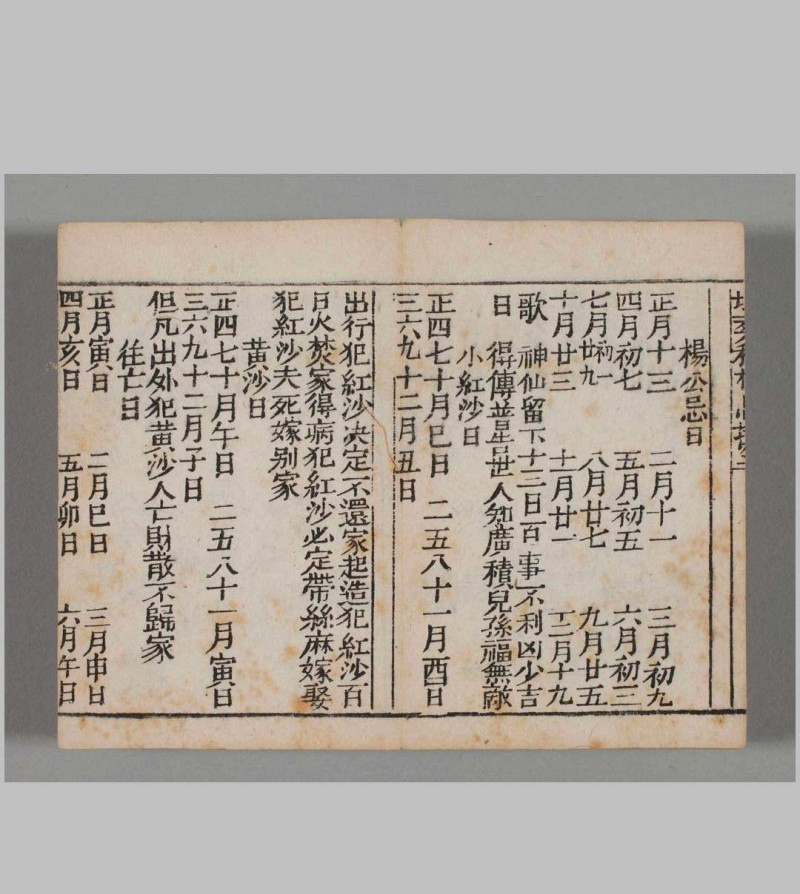 楊公忌日
正月十三 二月十一 三月初九
四月初七 五月初五 六月初三
七月初一廿九 八月廿七 九月廿五
十月廿三 十一月廿一 十二月十九
歌 神仙留下十三日百事不利凶少吉
日 得傳並是世人知廣積兒孫福無敵
小紅沙日
正四七十月巳日 二五八十一月酉日
三六九十二月丑日
出行犯紅沙决定不還家起造犯紅沙百
日火焚家得病犯紅沙必定帶絲麻嫁娶
犯紅沙夫死嫁别家
黄沙日
正四七十月午日 二五八十一月寅日
三六九十二月子日
但凡出外犯黄沙人亡財散不歸家
徃亡日
正月寅日 二月巳日 三月申日
四月亥日 五月卯日 六月午日